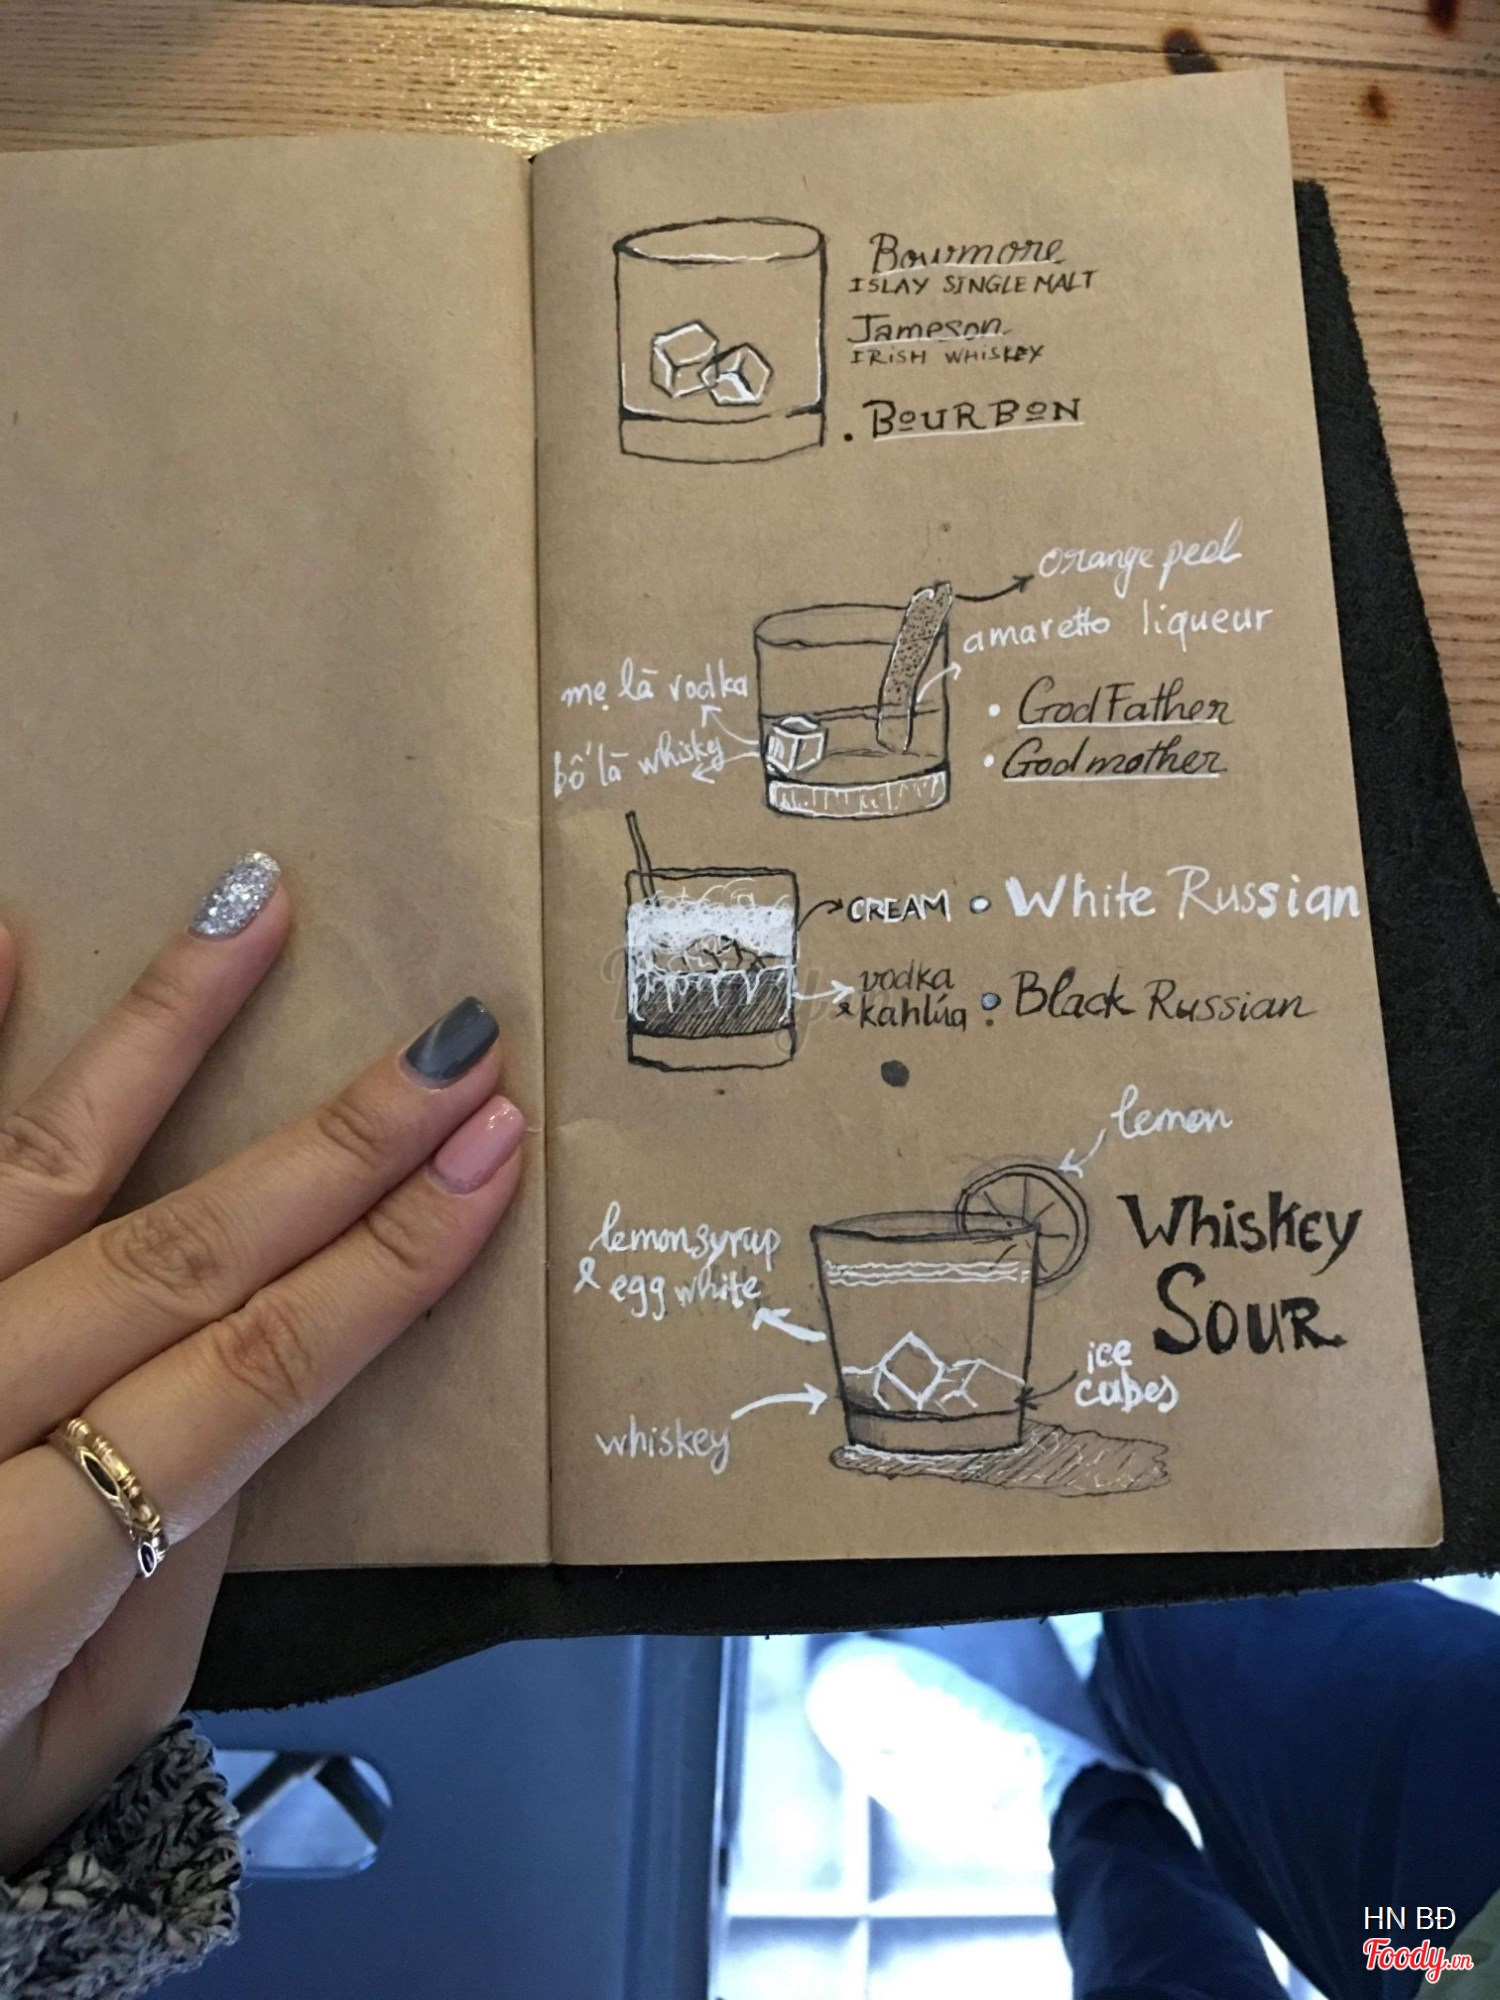 Bowmore
ISLAY SINGLE MALT
Jameson
IRISH WHISKEY
. BOURBON
orange peel
amaretto liqueur
mẹ là vodka
bố là whisky
• GodFather
• Godmother
CREAM • White Russian
vodka
& kahlúa • Black Russian
lemon
lemon syrup
& egg white
Whiskey
Sour
ice
cubes
whiskey
HN BĐ
Foody.vn